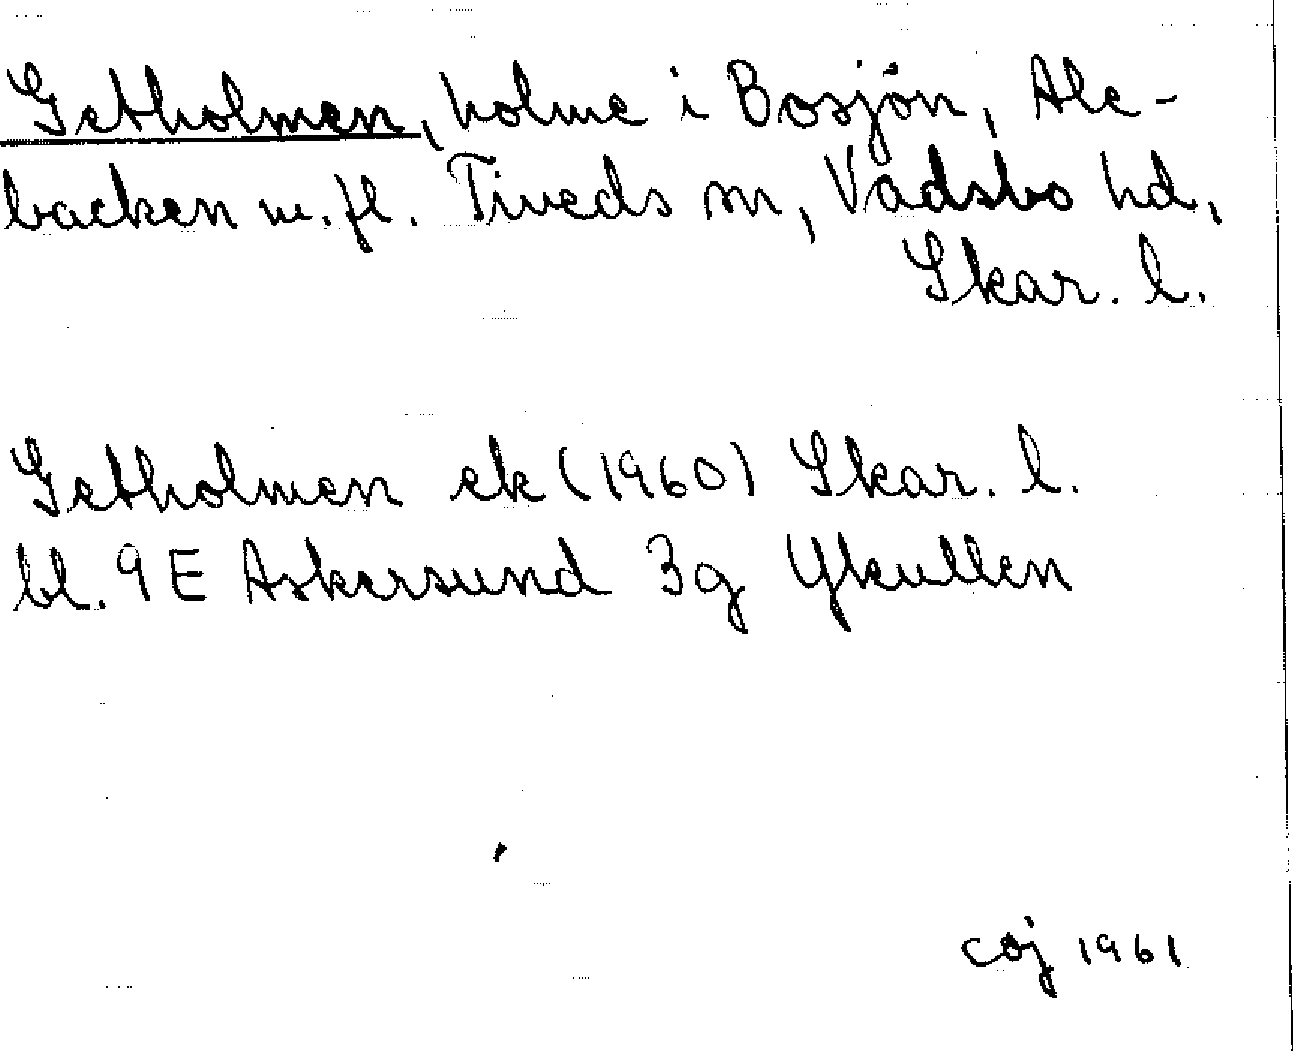 Getholmen, holme i Bosjön, Ale-
backen m.fl. Tiveds sn, Vadsbo hd,
Skar. l.
Getholmen ek (1960) Skar. l.
bl. 9E Askersund 3g Ykullen
coj 1961